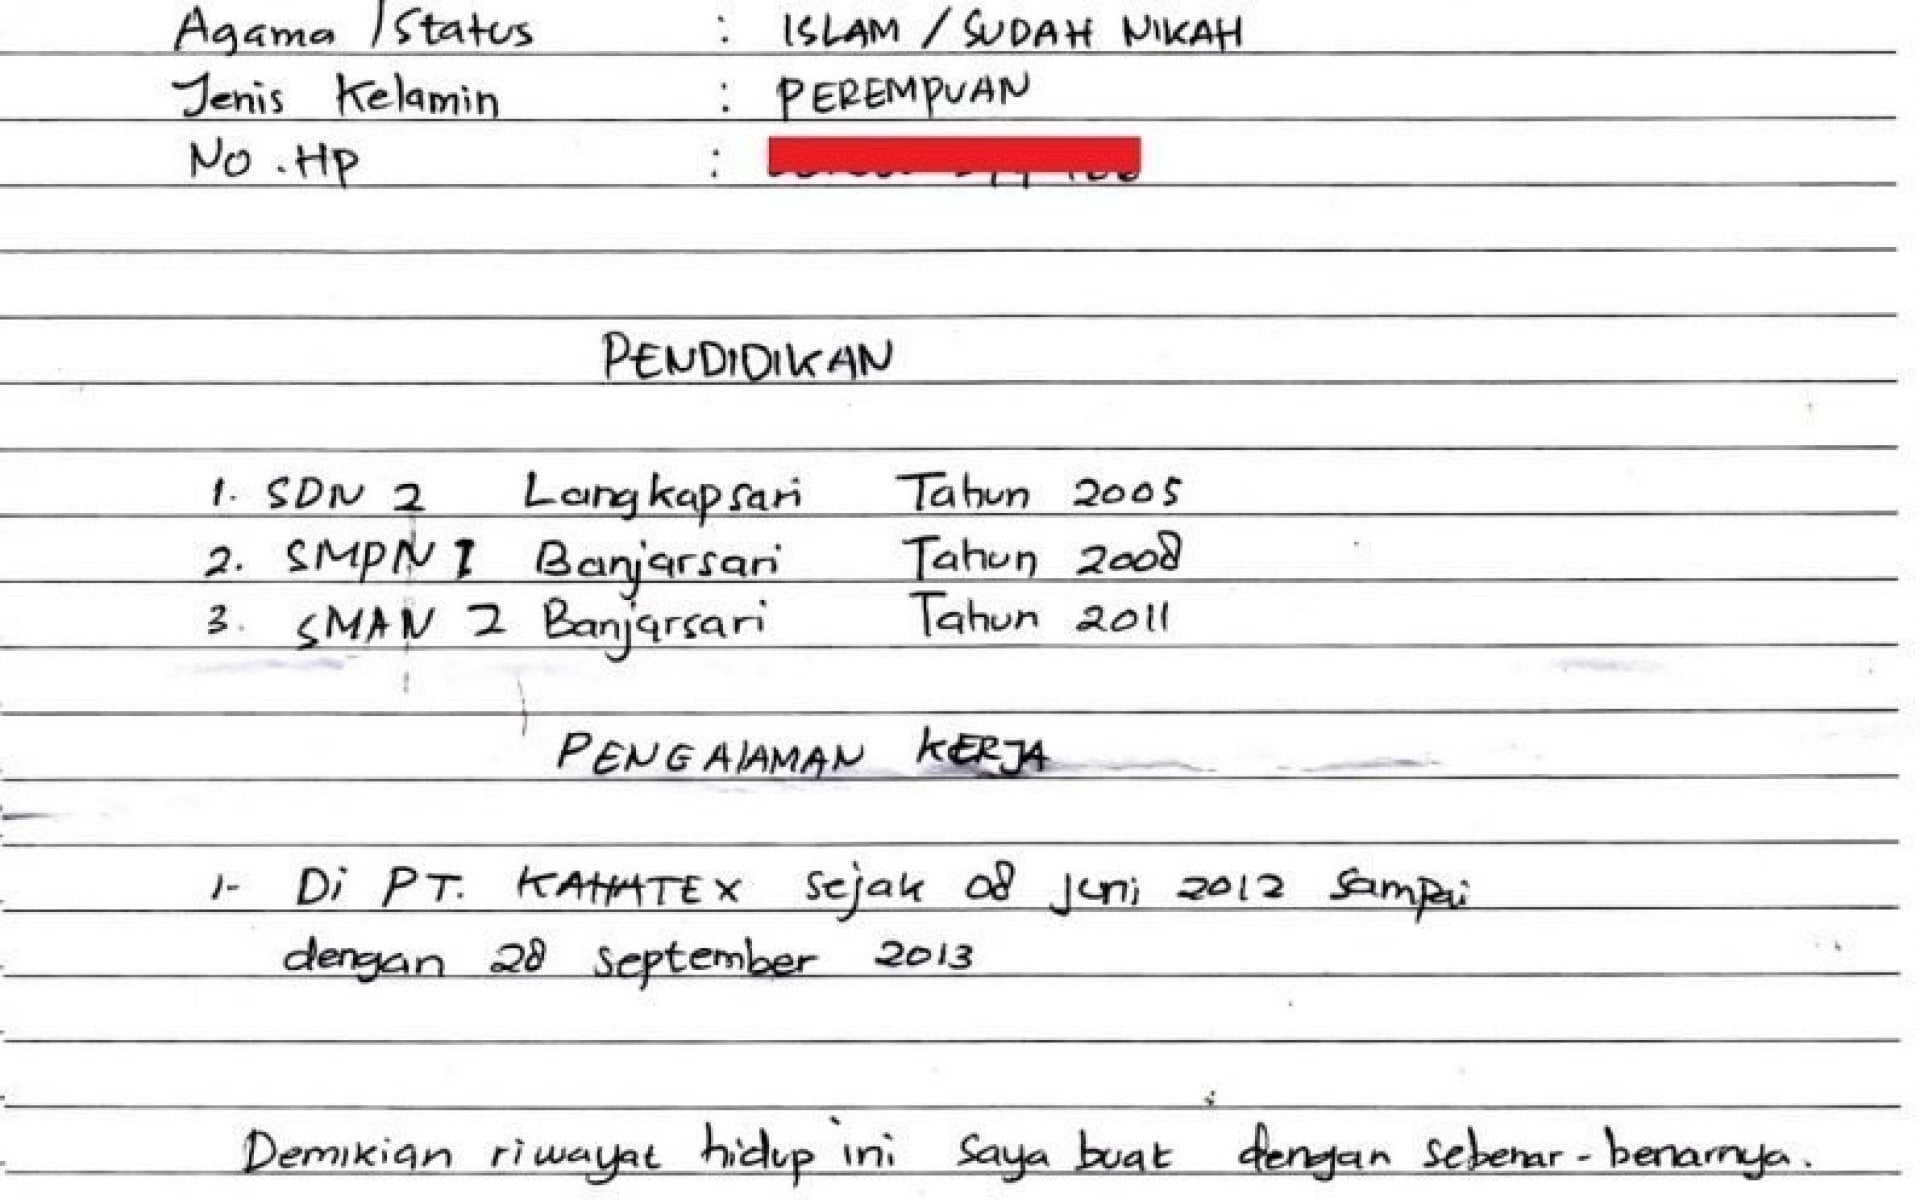 Agama / Status : ISLAM / SUDAH NIKAH
Jenis Kelamin : PEREMPUAN
No. Hp :
PENDIDIKAN
1. SDN 2 Langkapsari Tahun 2005
2. SMPN 1 Banjarsari Tahun 2008
3. SMAN 2 Banjarsari Tahun 2011
PENGALAMAN KERJA
1- Di PT. KAHATEX sejak 08 Juni 2012 sampai
dengan 28 september 2013
Demikian riwayat hidup ini saya buat dengan sebenar-benarnya.